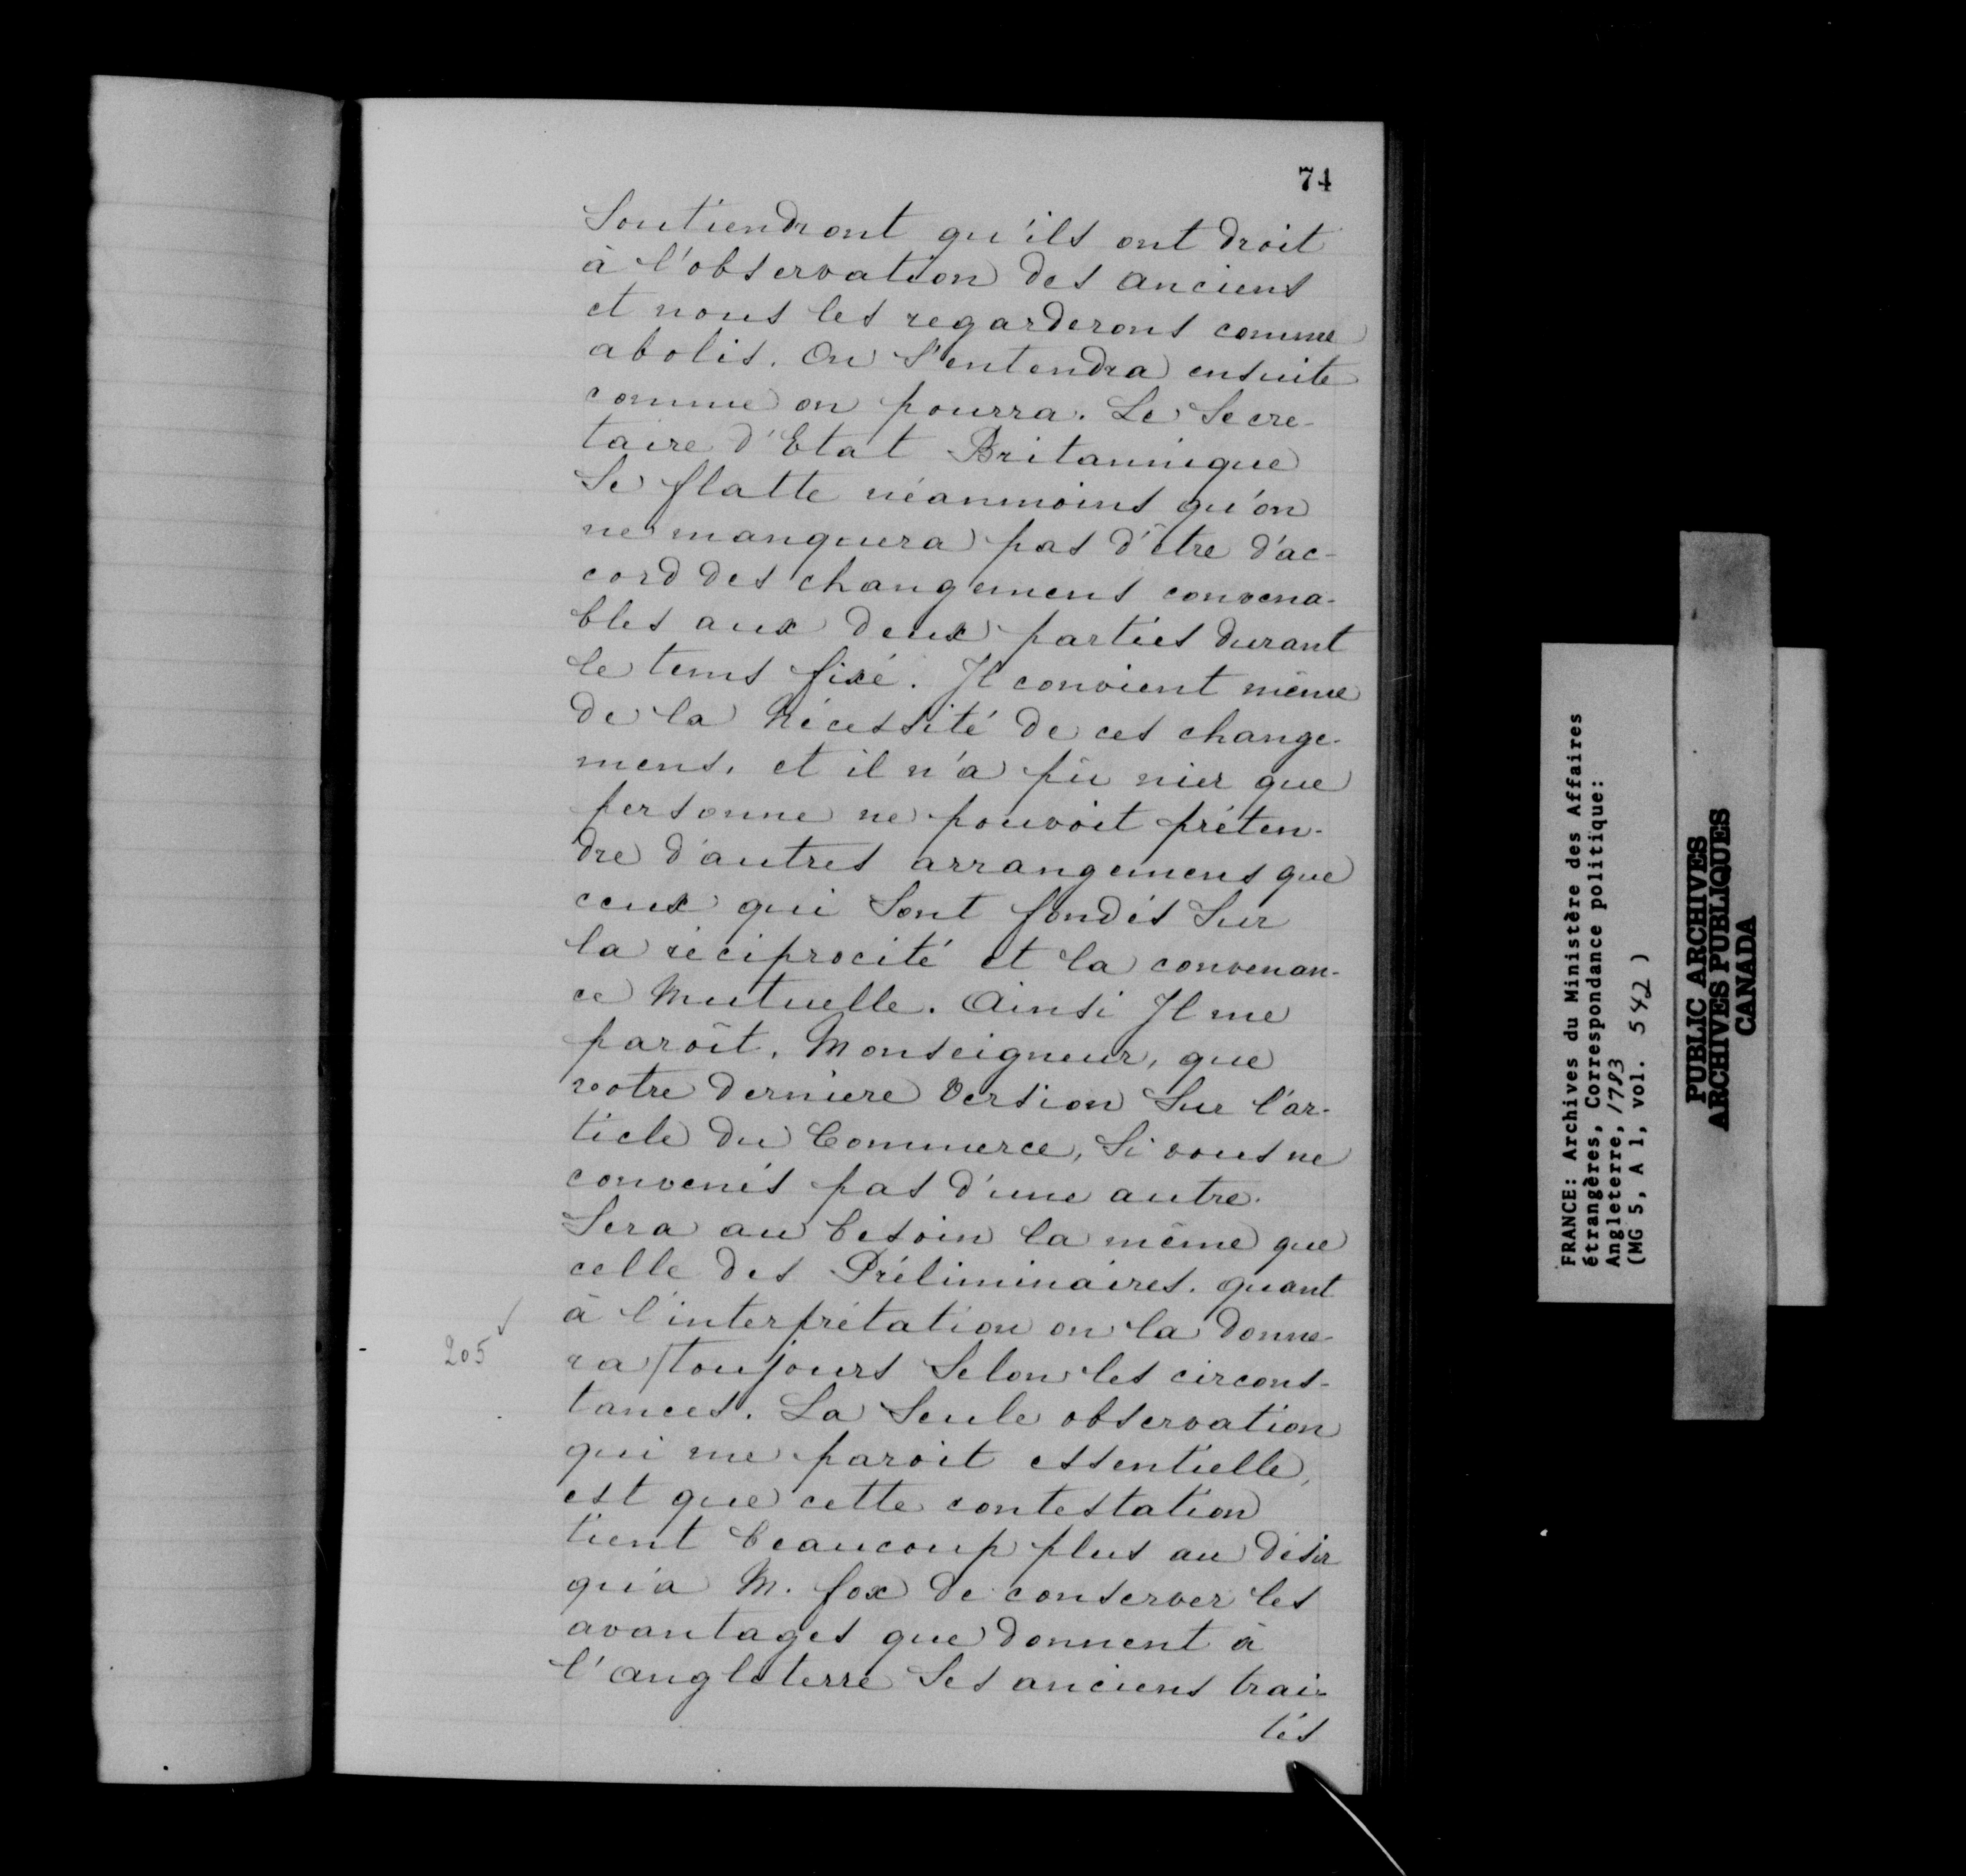 74
Soutiendront qu'ils ont droit
à l'observation des anciens
et nous les regarderons comme
abolis. On S'entendra ensuite
comme on pourra. Le Secre-
taire d'Etat Britannique
Se flatte néanmoins qu'on
ne manquera pas d'être d'ac-
cord des changemens convena-
bles aux deux parties durant
le tems fixé. Il convient même
de la Nécessité de ces change-
mens, et il n'a pû nier que
personne ne pouvoit préten-
dre d'autres arrangemens que
ceux qui Sont fondés Sur
la réciprocité et la convenan-
ce Mutuelle. Ainsi Il me
paroît, Monseigneur, que
votre derniere Version Sur l'ar-
ticle du Commerce, Si vous ne
convenés pas d'une autre.
Sera au besoin la même que
celle des Préliminaires. quant
à l'interprétation on la donne-
205 ✓
ra /toujours Selon les circons-
tances. La Seule observation
qui me paroit essentielle,
est que cette contestation
tient beaucoup plus au désir
qu'a M. fox de conserver les
avantages que donnent à
l'angleterre Ses anciens trai-
tés
FRANCE: Archives du Ministère des Affaires
étrangères, Correspondance politique:
Angleterre, 1783
(MG 5, A 1, vol. 542)
PUBLIC ARCHIVES
ARCHIVES PUBLIQUES
CANADA